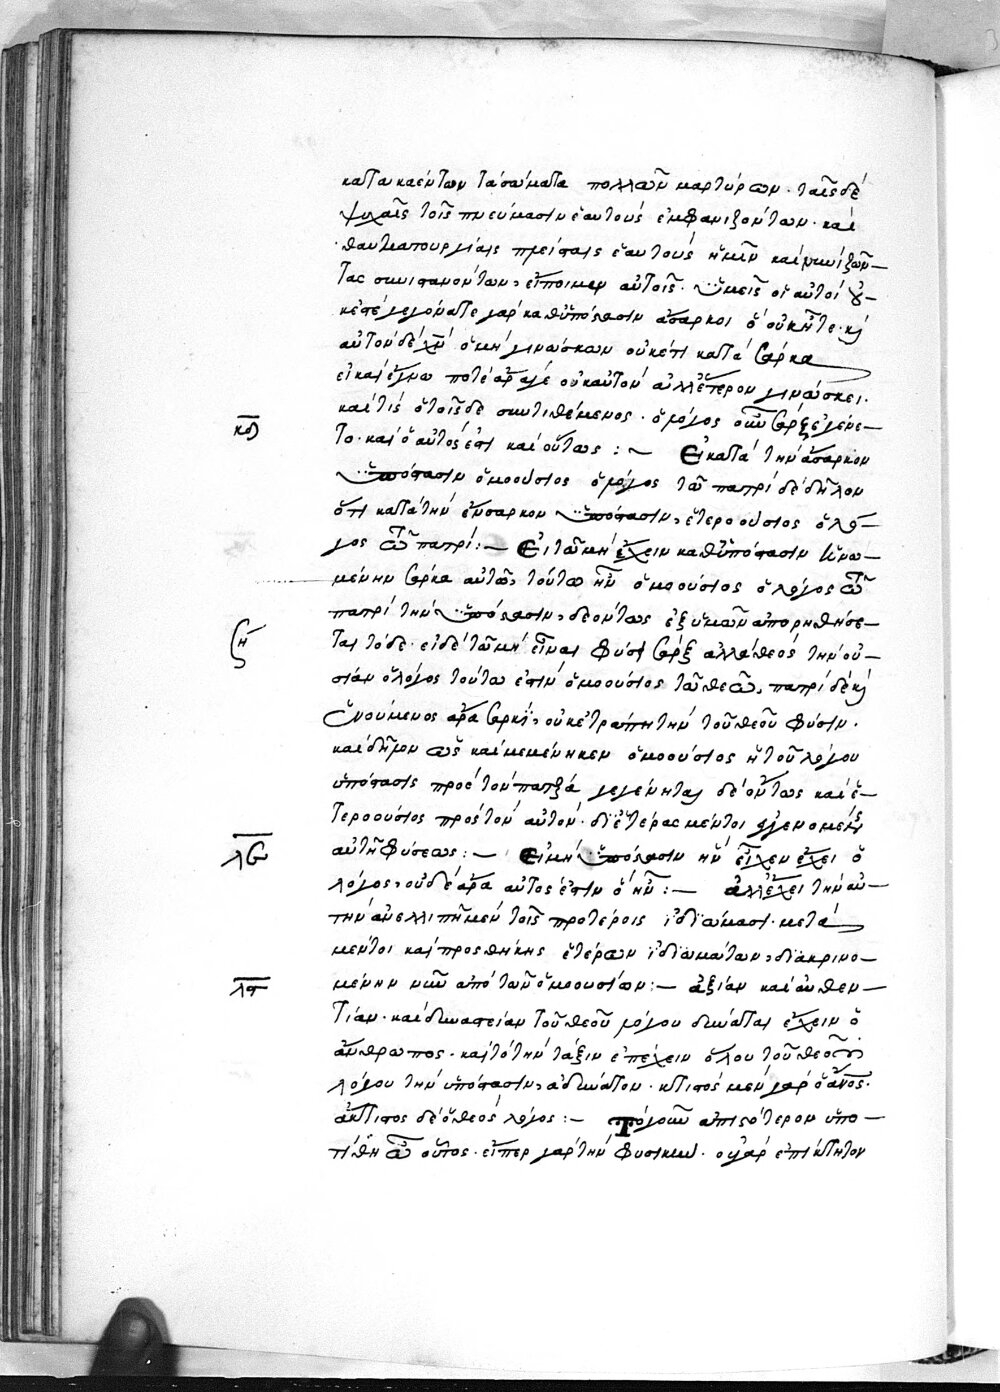 κατακαέντων τὰ σώματα πολλῶν μαρτύρων· ταῖς δὲ
ψυχαῖς τοῖς πνεύμασιν ἑαυτοὺς ἐμφανιζόντων· καὶ
θαυματουργίαις ἑαυτοὺς ἡμῖν
τας, εἴποιμεν αὐτοῖς· ὑμεῖς οἱ αὐτοὶ οὐ-
γεγόνατε γὰρ καθ' ὑπόστασιν ἄσαρκοι ὃ οὐκ ἦτε· καὶ
αὐτὸν δὲ χ̅ν̅ ὁ μὴ γινώσκων οὐκέτι κατὰ σάρκα
εἰ καὶ ἔγνω ποτὲ ἄρά γε οὐκ αὐτὸν ἀλλ' ἕτερον γινώσκει.
καὶ τίς ὁ τοῖσδε συντιθέμενος· ὁ λόγος οὖν σὰρξ ἐγένε-
το· καὶ ὁ αὐτός ἐστι καὶ οὕτως :~ Εἰ κατὰ τὴν ἄσαρκον
ὑπόστασιν ὁμοούσιος ὁ λόγος τῶ πατρὶ δέδηλον
ὅτι κατὰ τὴν ἔνσαρκον ὑπόστασιν, ἑτεροούσιος ὁ λό-
γος τῶ πατρί :— Εἰ τῶ μὴ ἔχειν καθ' ὑπόστασιν ἡνω-
μένην σάρκα αὐτῶ, τούτω ἦν ὁμοούσιος ὁ λόγος τῶ
πατρὶ τὴν ὑπόστασιν, δεόντως ἐξ ὑμῶν ἀπορηθήσε-
ται τόδε· εἰ δὲ τῶ μὴ εἶναι φύσει σὰρξ ἀλλὰ θεὸς τὴν οὐ-
σίαν ὁ λόγος τούτω ἐστὶν ὁμοούσιος τῶ θεῶ, πατρὶ δὲ καὶ
ἑνούμενος ἄρα σαρκί, οὐκ ἐτράπη τὴν τοῦ θεοῦ φύσιν·
καὶ δῆλον ὡς καὶ μεμένηκεν ὁμοούσιος ἡ τοῦ λόγου
ὑπόστασις πρὸς τὸν π̅ρ̅α γεγένηται δὲ ὄντως καὶ ἑ-
τεροούσιος πρὸς τὸν αὐτὸν· δι' ἑτέρας μέντοι γενομένης
αὐτῆ φύσεως :— Εἰ μὴ ὑπόστασιν ἣν εἶχεν ἔχει ὁ
λόγος, οὐδὲ ἄρα αὐτός ἐστιν ὃ ἦν :— ἀλλ' ἔχει τὴν αὐ-
τὴν ἀνελλιπῆ μὲν τοῖς προτέροις ἰδιώμασι· μετὰ
μέντοι καὶ προσθήκης ἑτέρων ἰδιωμάτων, διακρινο-
μένην νῦν ἀπὸ τῶν ὁμοουσίων :— ἀξίαν καὶ αὐθεν-
τίαν· καὶ δυναστείαν τοῦ θεοῦ λόγου δύναται ἔχειν ὁ
ἄνθρωπος· καὶ τὸ τὴν τάξιν ἐπέχειν ὅλου τοῦ θεοῦ
λόγου τὴν ὑπόστασιν, ἀδύνατον· κτιστὸς μὲν γὰρ ὁ ἄ̅ν̅ος·
ἄκτιστος δὲ ὁ θεὸς λόγος :— Τὸ γοῦν ἀπιστότερον ὑπο-
οὗτος· εἴπερ γὰρ τὴν φυσικὴν· οὐ γὰρ ἐπίκτητον
κ̅θ̅
ζή
λ̅ω̅
λ̅α̅